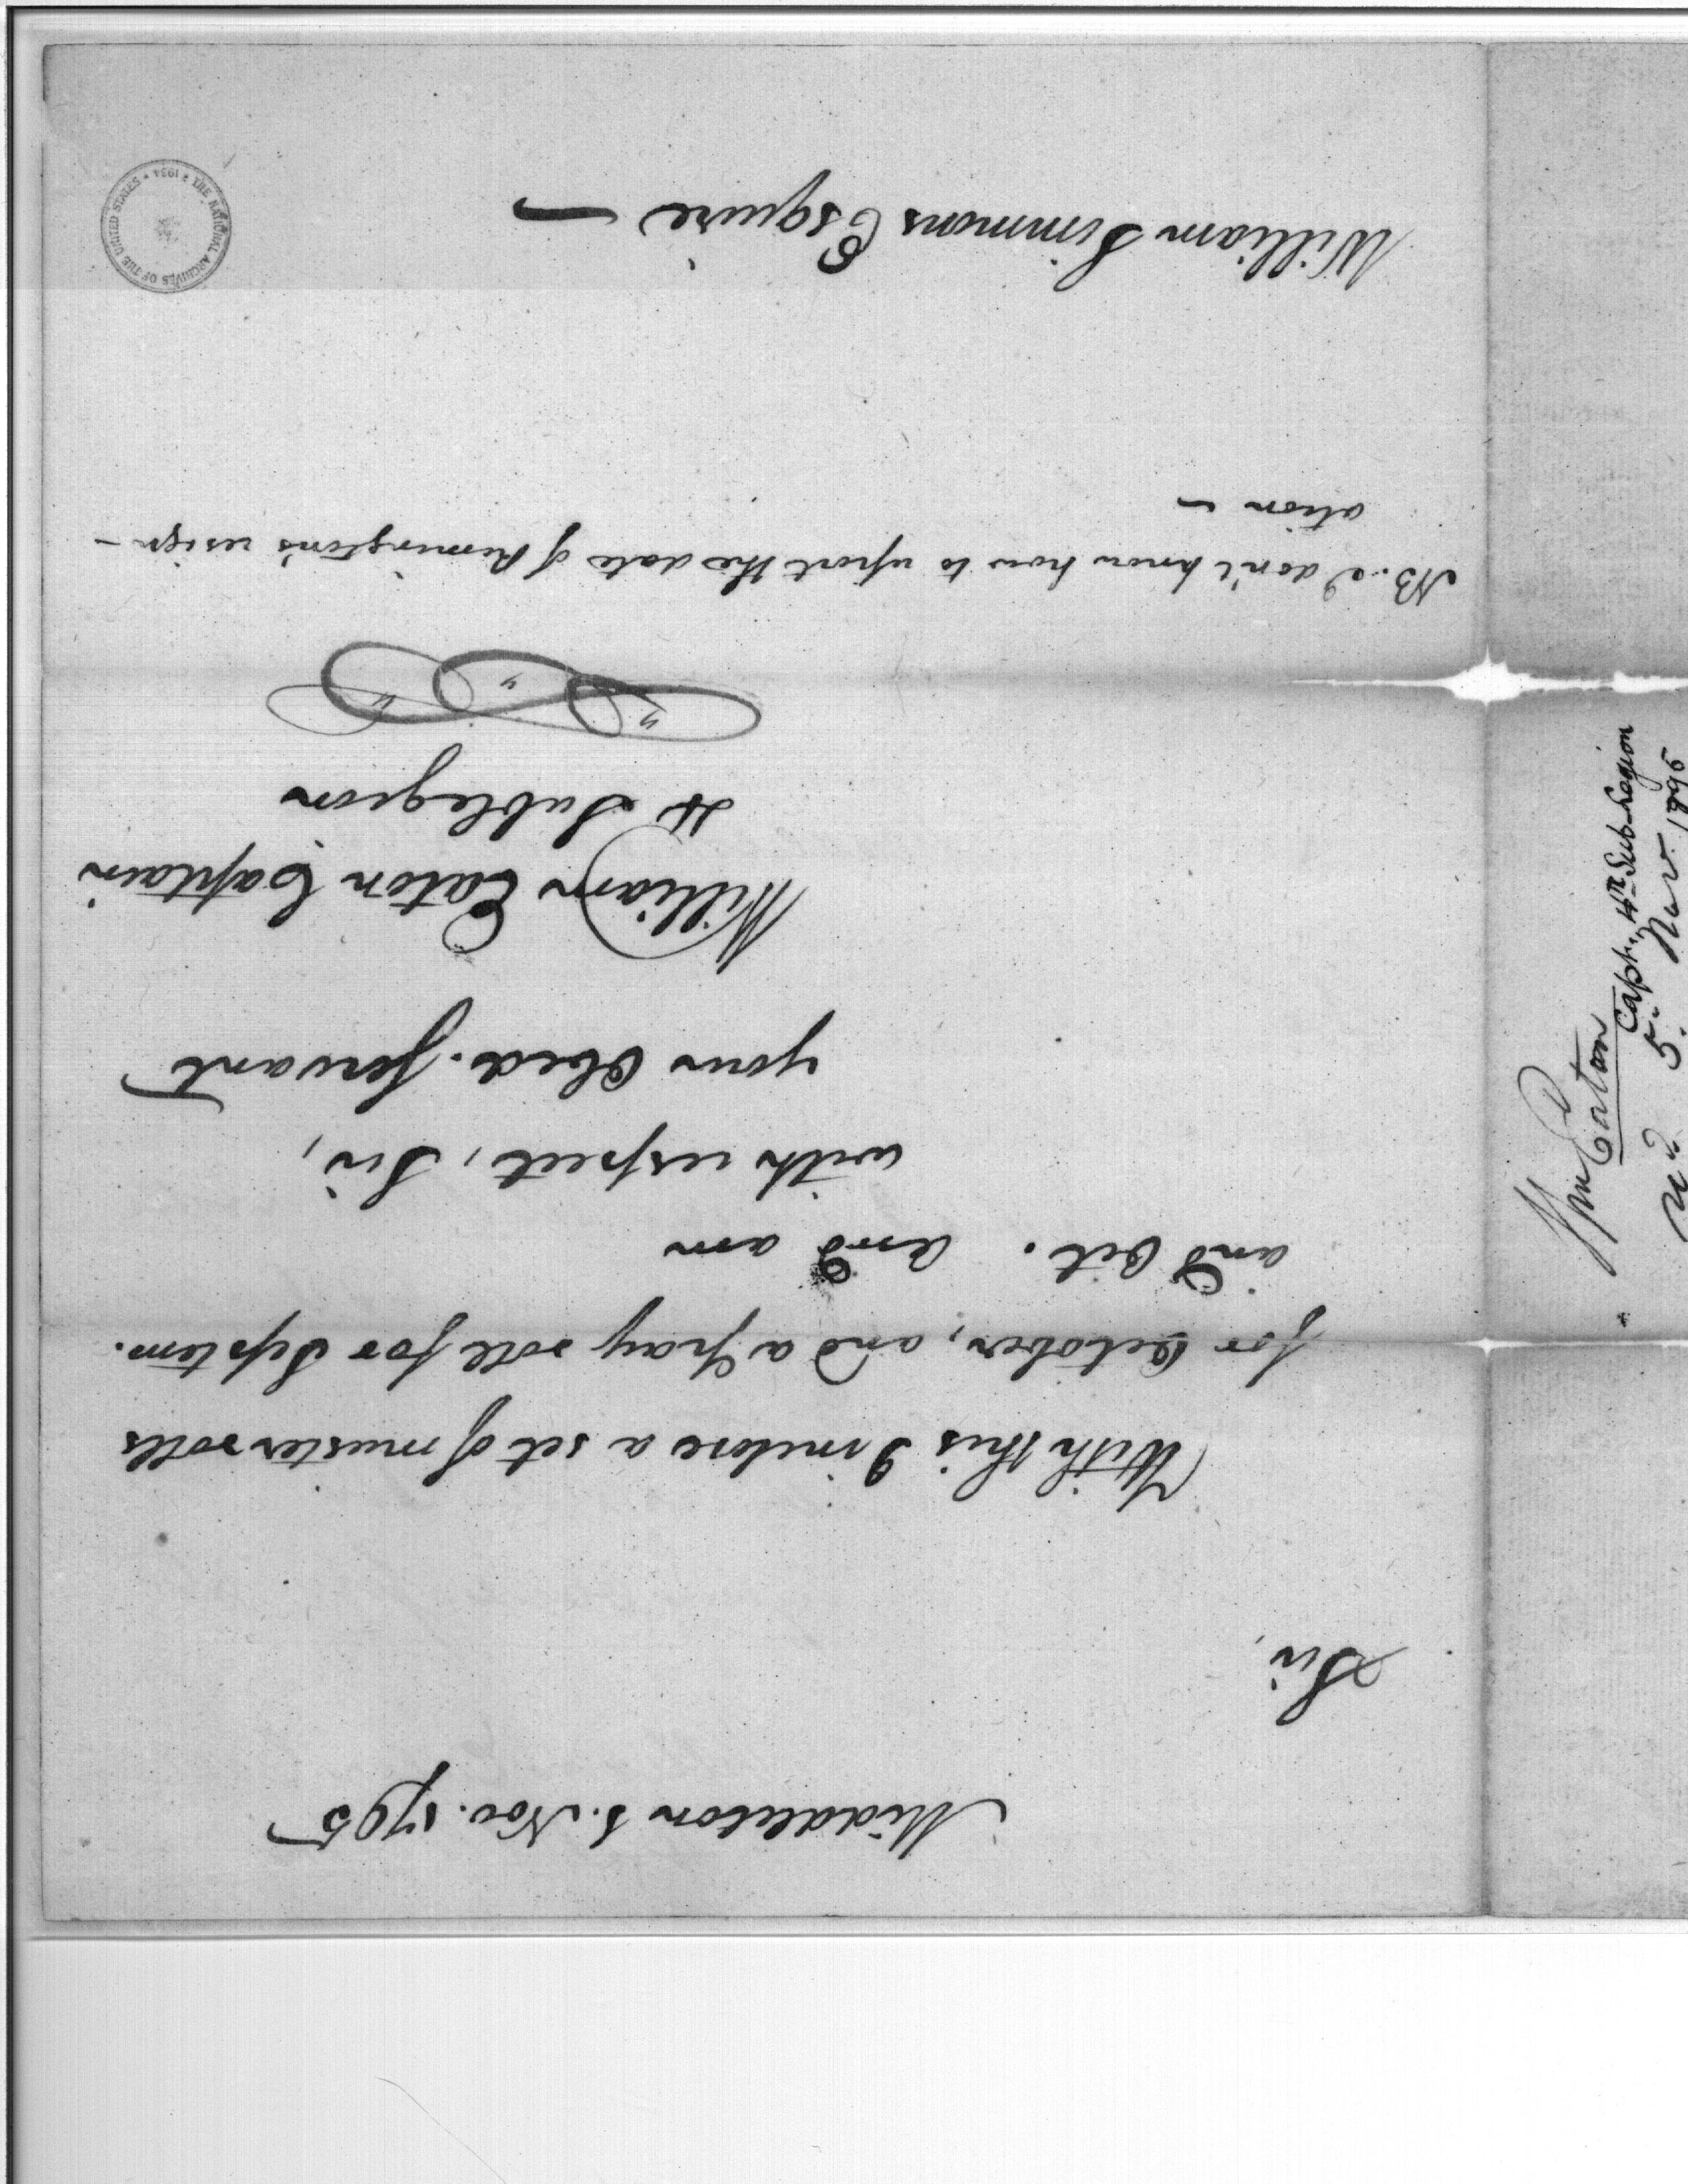 Middleton 5. Nov. 1795
Sir,
With this I inclose a set of muster rolls
for October, and a pay roll for Septem.
and Oct. and am
with respect, Sir,
your Obed. servant
William Eaton Captain
4 Sublegion
NB. I don't know how to report the date of Remington's resign-
ation —
William Simmons Esquire —
Wm Eaton
Capt. 4th Sub-Legion
5. Nov. 1795
THE NATIONAL ARCHIVES OF THE UNITED STATES * 1934 *